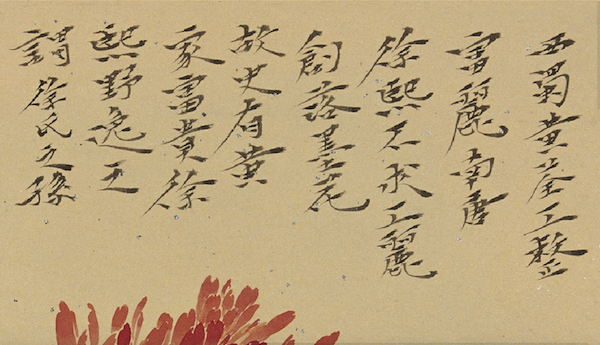 西蜀黄荃工整
富麗南唐
徐熙不求工麗
創落墨花
故史有黄
家富貴徐
熙野逸之
謂徐氏之孫